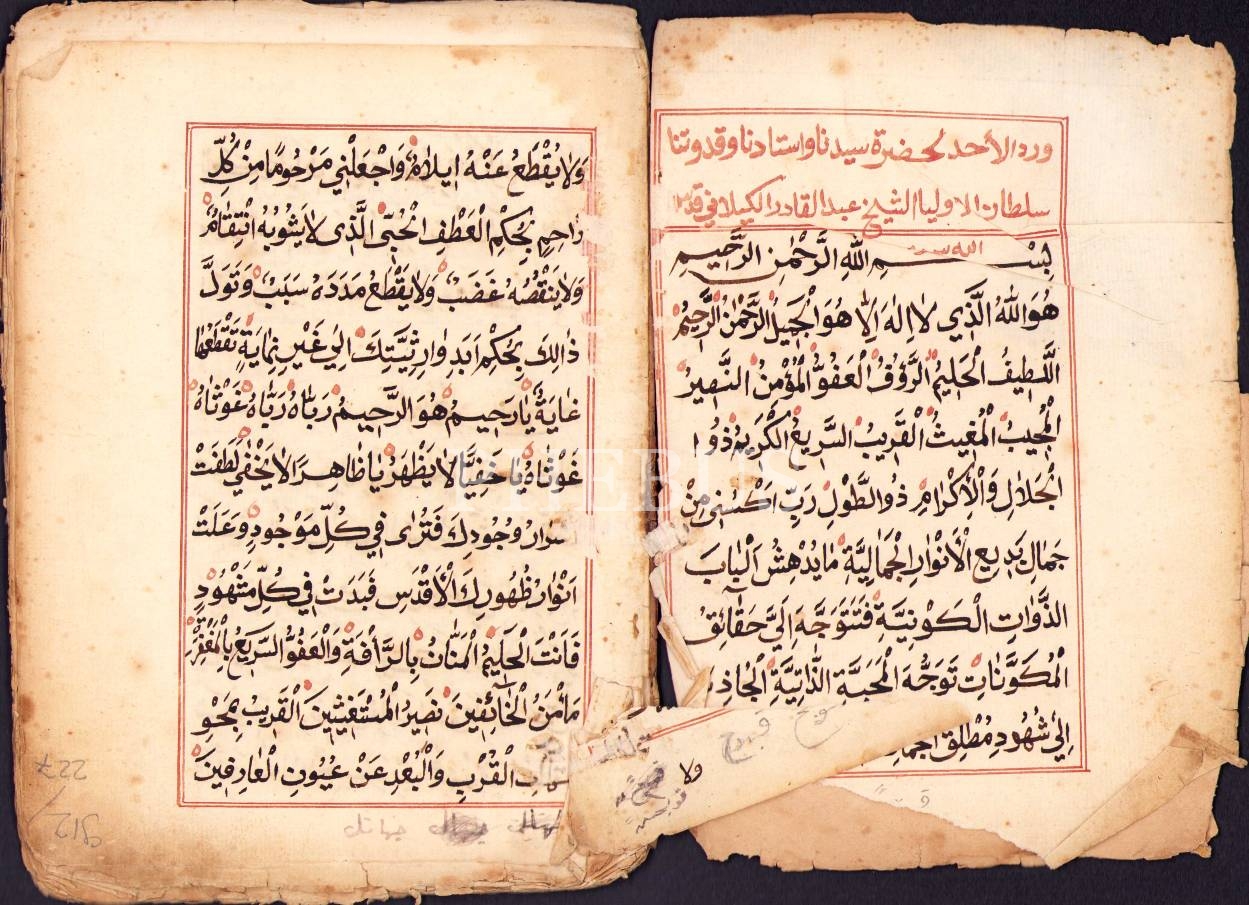 ورد الأحد لحضرة سيدنا واستادنا وقدوتنا
سلطان الاوليا الشيخ عبد القادر الكيلاني
بِسْمِ اللهِ الرَّحْمٰنِ الرَّحِيمِ
هُوَ اللهُ الَّذِي لَا اِلٰهَ اِلَّا هُوَ الْجَمِيلُ الرَّحْمٰنُ الرَّحِيمُ
اللَّطِيفُ الْحَلِيمُ الرَّؤُفُ الْعَفُوُّ الْمُؤْمِنُ النَّصِيرُ
الْمُجِيبُ الْمُغِيثُ الْقَرِيبُ السَّرِيعُ الْكَرِيمُ ذُوا
الْجَلَالِ وَالْاِكْرَامِ ذُو الطَّوْلِ رَبِّ اكْسُنِي مِنْ
جَمَالِ بَدِيعِ الْاَنْوَارِ الْجَمَالِيَّةِ مَا يُدْهِشُ اَلْبَابَ
الذَّوَاتِ الْكَوْنِيَّةِ فَتَتَوَجَّهَ اِلَيَّ حَقَائِقُ
الْمُكَوَّنَاتِ تَوَجُّهَ الْمَحَبَّةِ الذَّاتِيَّةِ
اِلَى شُهُودِ مُطْلَقِ
ولا
وَلَا يُقْطَعُ عَنْهُ اِيلَامٌ وَاجْعَلْنِي مَرْحُومًا مِنْ كُلِّ
رَاحِمٍ بِحُكْمِ الْعَطْفِ الْحُبِّيِّ الَّذِي لَا يَشُوبُهُ انْتِقَامٌ
وَلَا يَنْقُصُهُ غَضَبٌ وَلَا يَقْطَعُ مَدَدَهُ سَبَبٌ وَتَوَلَّ
ذَالِكَ بِحُكْمِ اَبَدِ وَارِثِيَّتِكَ اِلَى غَيْرِ نِهَايَةٍ تَقْطَعُهَا
غَايَةٌ يَا رَحِيمُ هُوَ الرَّحِيمُ رَبَّاهُ رَبَّاهُ غَوْثَاهُ
غَوْثَاهُ يَا خَفِيًّا لَا يَظْهَرُ يَا ظَاهِرًا لَا يَخْفَى لَطُفَتْ
وُجُودِكَ فَتُرٰى فِي كُلِّ مَوْجُودٍ وَعَلَتْ
اَنْوَارُ ظُهُورِكَ الْاَقْدَسِ فَبَدَتْ فِي كُلِّ مَشْهُودٍ
فَاَنْتَ الْحَلِيمُ الْمَنَّانُ بِالرَّاْفَةِ وَالْعَفُوُّ السَّرِيعُ بِالْمَغْفِرَةِ
مَاْمَنُ الْخَائِفِينَ نَصِيرُ الْمُسْتَغِيثِينَ الْقَرِيبُ بِمَحْوِ
الْقُرْبِ وَالْبُعْدِ عَنْ عُيُونِ الْعَارِفِينَ
227
912
PHEBUS